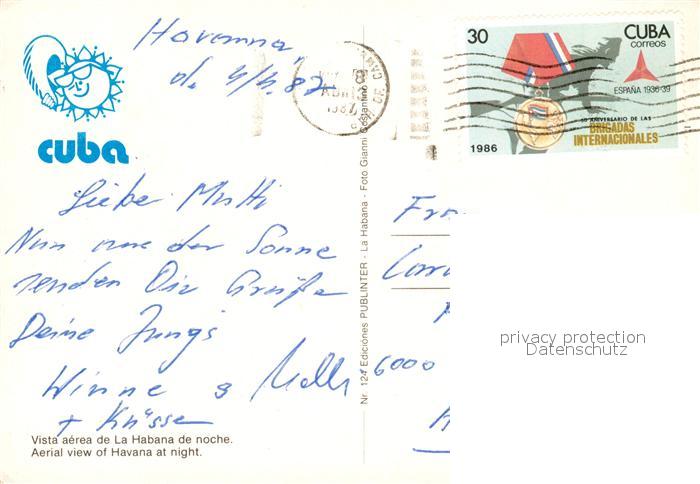 Havanna,
d. 4/4.87
cuba
30
CUBA
correos
ESPAÑA 1936-39
50 ANIVERSARIO DE LAS
BRIGADAS
INTERNACIONALES
1986
Liebe Mutti
Nun aus der Sonne
senden Dir Grüße
Deine Jungs
Winne &
+ Küsse
Vista aérea de La Habana de noche.
Aerial view of Havana at night.
Nr. 124 Ediciónes PUBLINTER - La Habana - Foto Gianni Costantino
6000
privacy protection
Datenschutz